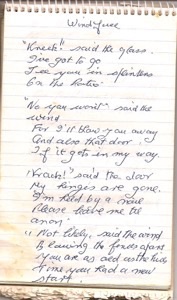 Windfall
"Kneck!" said the glass.
I've got to go
I see you in splinters
On the Patio.
"No you won't" said the
wind
For I'll blow you away
And also that door
If it gets in my way.
"Kraak!" said the door
My hinges are gone.
I'm held by a nail
Please leave me
anon.
"Not likely, said the wind
Blowing the
you are as old as the
time you had a new
start.